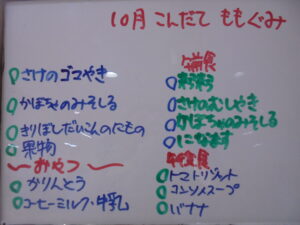 10月 こんだて ももぐみ
さけのゴマやき
かぼちゃのみそしる
きりぼしだいこんのにもの
果物
おやつ
かりんとう
コーヒーミルク・牛乳
さけのむしやき
かぼちゃのみそしる
になます
トマトリゾット
コンソメスープ
バナナ